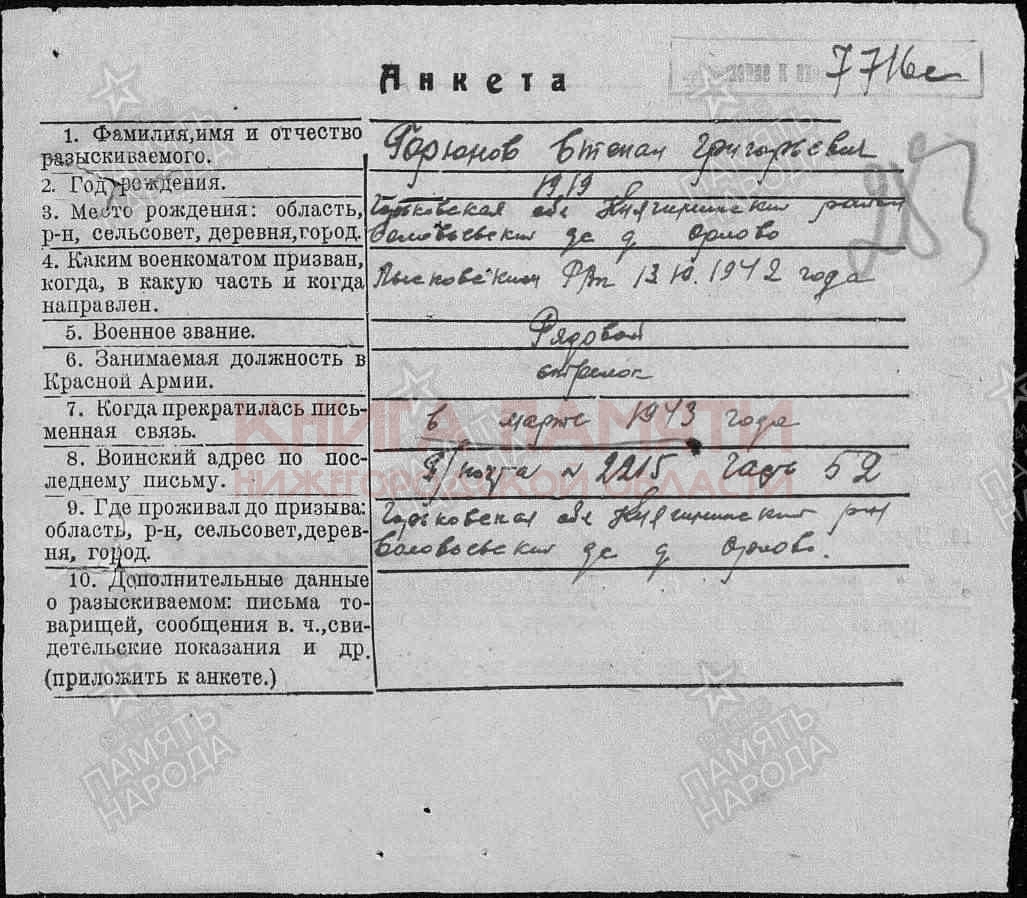 7716с
Анкета
1. Фамилия,имя и отчество
разыскиваемого.
Горюнов Степан Григорьевич
283
2. Год рождения.
1919
3. Место рождения: область,
р-н, сельсовет, деревня,город.
Горьковская обл Княгининский район
Соловьевский с д Орлово
4. Каким военкоматом призван,
когда, в какую часть и когда
направлен.
Лысковским РВК 13 10.1942 года
5. Военное звание.
Рядовой
6. Занимаемая должность в
Красной Армии.
стрелок
7. Когда прекратилась пись-
менная связь.
в марте 1943 года
8. Воинский адрес по пос-
леднему письму.
П/почта № 2215 часть 52
9. Где проживал до призыва:
область, р-н, сельсовет,дерев-
ня, город.
Горьковская обл Княгининский р-н
Соловьевский с д Орлово.
10. Дополнительные данные
о разыскиваемом: письма то-
варищей, сообщения в. ч.,сви-
детельские показания и др.
(приложить к анкете.)
КНИГА ПАМЯТИ
НИЖЕГОРОДСКОЙ ОБЛАСТИ
ПАМЯТЬ
НАРОДА
ПАМЯТЬ
НАРОДА